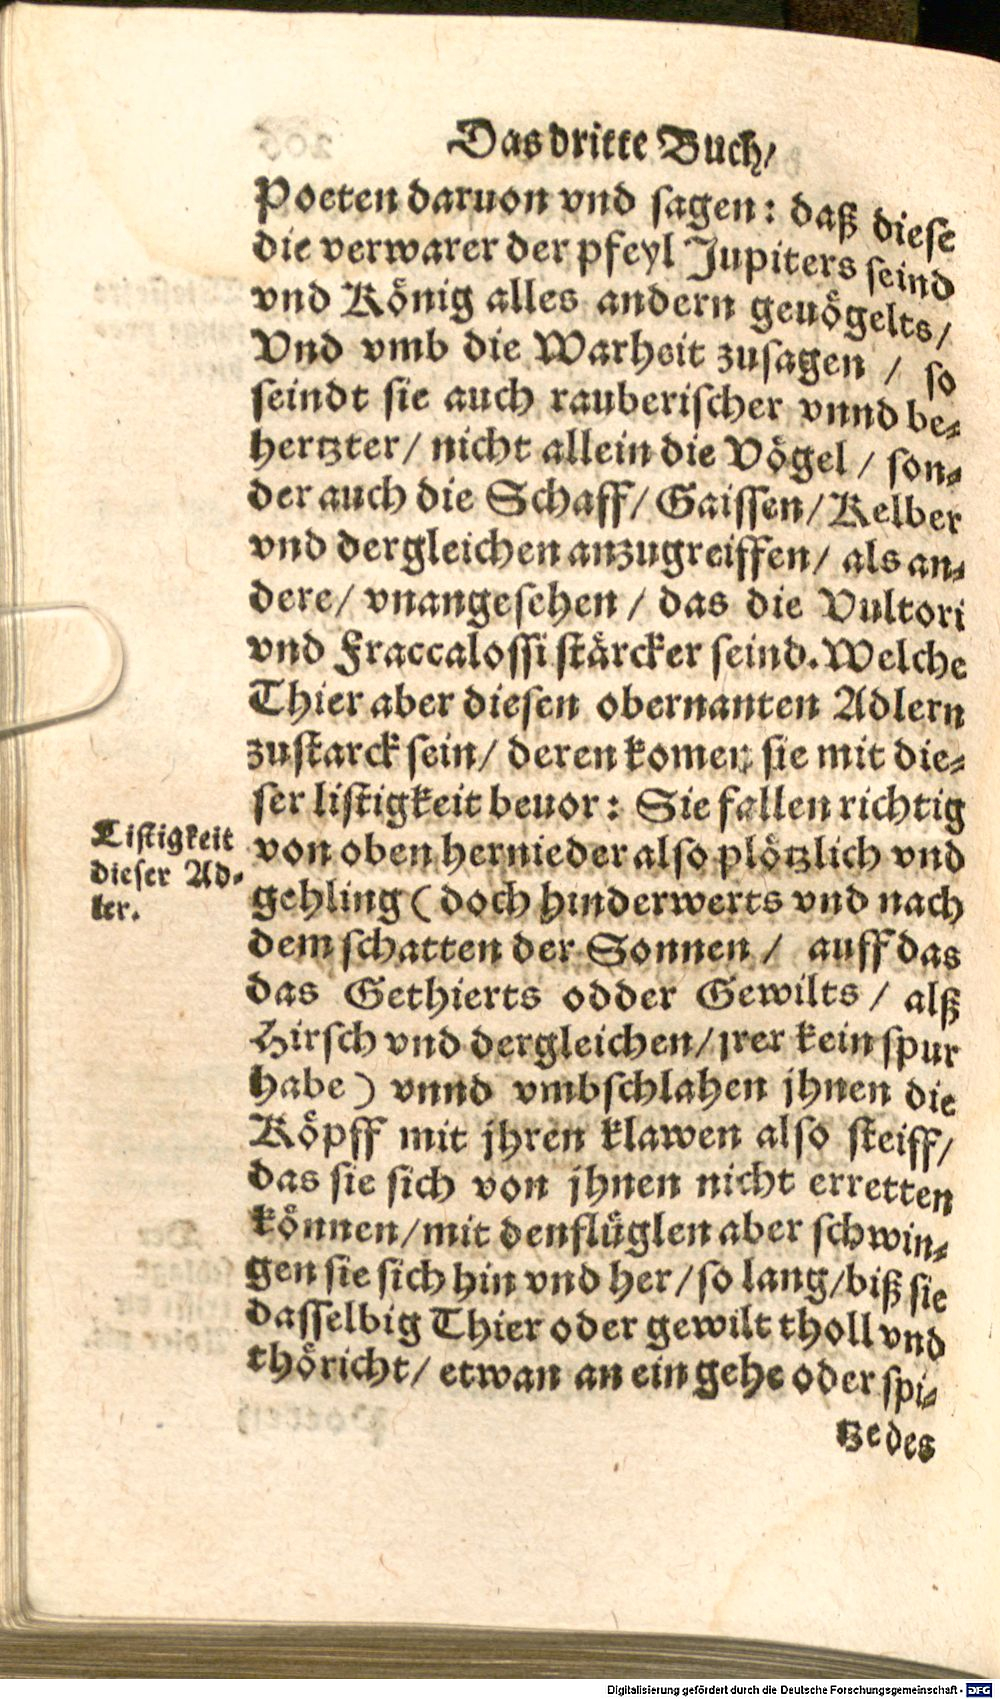 Das dritte Buch/
Poeten daruon vnd sagen: daß diese
die verwarer der pfeyl Jupiters seind
vnd König alles andern geuögelts/
Vnd vmb die Warheit zusagen / so
seindt sie auch rauberischer vnnd be-
hertzter/ nicht allein die Vögel / son-
der auch die Schaff/ Gaissen/ Kelber
vnd dergleichen anzugreiffen/ als an-
dere/ vnangesehen / das die Vultori
vnd Fraccalossi stärcker seind. Welche
Thier aber diesen obernanten Adlern
zustarck sein/ deren komen sie mit die-
ser listigkeit beuor: Sie fallen richtig
Listigkeit
dieser Ad-
ler.
von oben hernieder also plötzlich vnd
gehling ( doch hinderwerts vnd nach
dem schatten der Sonnen / auff das
das Gethierts odder Gewilts / alß
Hirsch vnd dergleichen/ jrer kein spur
habe ) vnnd vmbschlahen jhnen die
Köpff mit jhren klawen also steiff/
das sie sich von jhnen nicht erretten
können/ mit den flüglen aber schwin-
gen sie sich hin vnd her/ so lang/ biß sie
dasselbig Thier oder gewilt tholl vnd
thöricht/ etwan an ein gehe oder spi-
tze des
Digitalisierung gefördert durch die Deutsche Forschungsgemeinschaft - DFG